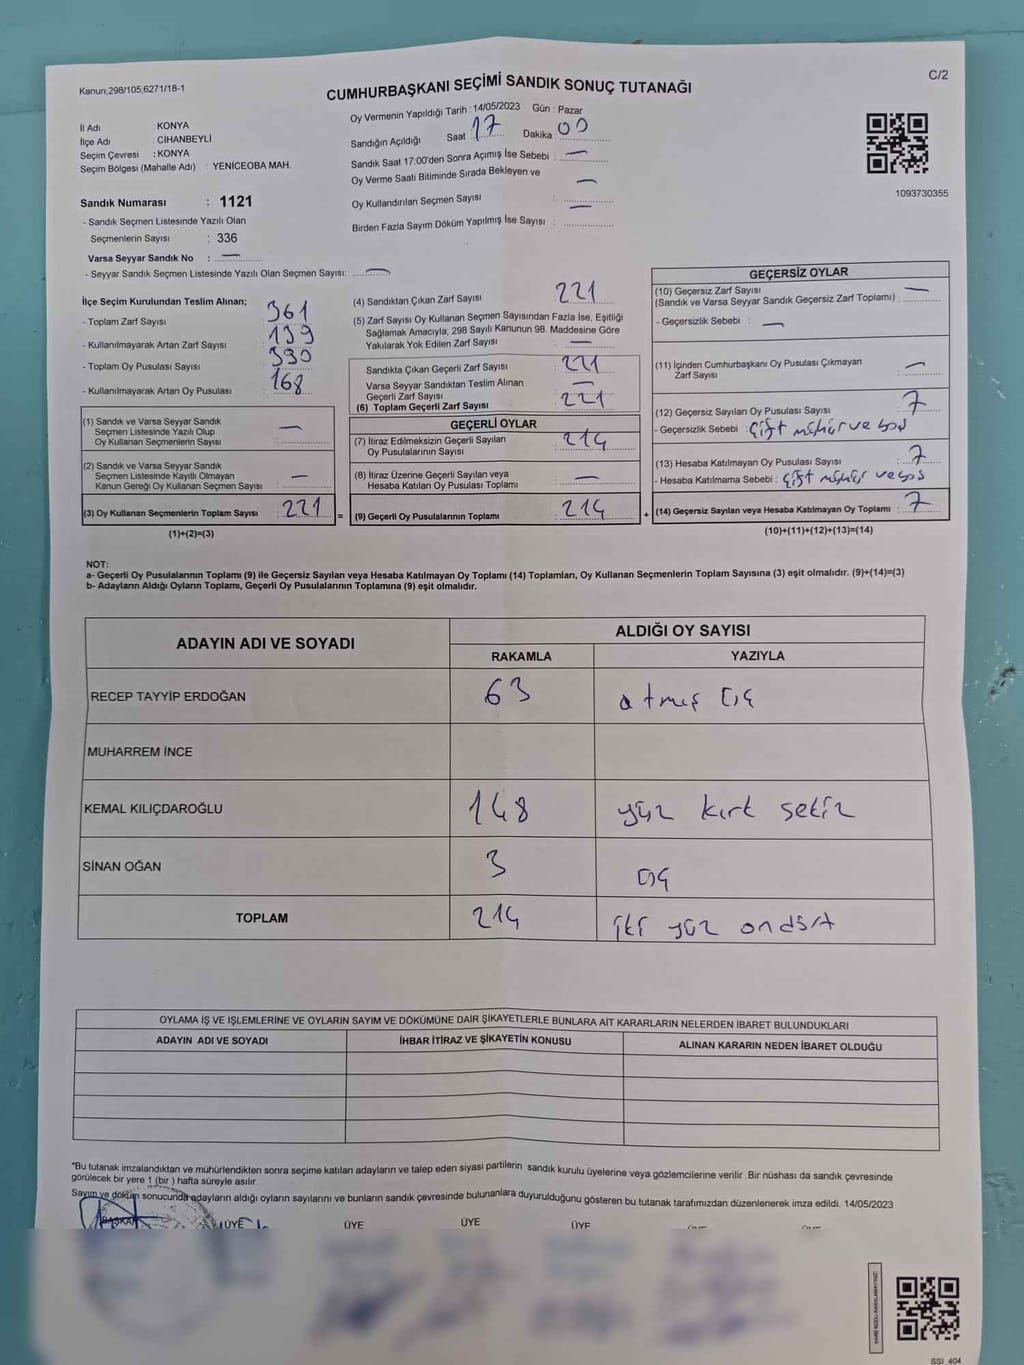 Kanun;298/105;6271/18-1
CUMHURBAŞKANI SEÇİMİ SANDIK SONUÇ TUTANAĞI
C/2
İl Adı : KONYA
İlçe Adı : CİHANBEYLİ
Seçim Çevresi : KONYA
Seçim Bölgesi (Mahalle Adı) : YENİCEOBA MAH.
Sandık Numarası : 1121
- Sandık Seçmen Listesinde Yazılı Olan
Seçmenlerin Sayısı : 336
Varsa Seyyar Sandık No : —
- Seyyar Sandık Seçmen Listesinde Yazılı Olan Seçmen Sayısı: —
Oy Vermenin Yapıldığı Tarih : 14/05/2023 Gün : Pazar
Sandığın Açıldığı Saat : 17 Dakika : 00
Sandık Saat 17:00'den Sonra Açımış İse Sebebi : —
Oy Verme Saati Bitiminde Sırada Bekleyen ve
Oy Kullandırılan Seçmen Sayısı : —
Birden Fazla Sayım Döküm Yapılmış İse Sayısı : —
1093730355
İlçe Seçim Kurulundan Teslim Alınan;
- Toplam Zarf Sayısı 361
- Kullanılmayarak Artan Zarf Sayısı 139
- Toplam Oy Pusulası Sayısı 390
- Kullanılmayarak Artan Oy Pusulası 168
(1) Sandık ve Varsa Seyyar Sandık
Seçmen Listesinde Yazılı Olup
Oy Kullanan Seçmenlerin Sayısı —
(2) Sandık ve Varsa Seyyar Sandık
Seçmen Listesinde Kayıtlı Olmayan
Kanun Gereği Oy Kullanan Seçmen Sayısı —
(3) Oy Kullanan Seçmenlerin Toplam Sayısı : 221 =
(1)+(2)=(3)
(4) Sandıktan Çıkan Zarf Sayısı : 221
(5) Zarf Sayısı Oy Kullanan Seçmen Sayısından Fazla İse, Eşitliği
Sağlamak Amacıyla, 298 Sayılı Kanunun 98. Maddesine Göre
Yakılarak Yok Edilen Zarf Sayısı : —
Sandıkta Çıkan Geçerli Zarf Sayısı : 221
Varsa Seyyar Sandıktan Teslim Alınan
Geçerli Zarf Sayısı : —
(6) Toplam Geçerli Zarf Sayısı : 221
GEÇERLİ OYLAR
(7) İtiraz Edilmeksizin Geçerli Sayılan
Oy Pusulalarının Sayısı : 214
(8) İtiraz Üzerine Geçerli Sayılan veya
Hesaba Katılan Oy Pusulası Toplamı : —
(9) Geçerli Oy Pusulalarının Toplamı : 214 +
GEÇERSİZ OYLAR
(10) Geçersiz Zarf Sayısı
(Sandık ve Varsa Seyyar Sandık Geçersiz Zarf Toplamı) : —
- Geçersizlik Sebebi : —
(11) İçinden Cumhurbaşkanı Oy Pusulası Çıkmayan
Zarf Sayısı : —
(12) Geçersiz Sayılan Oy Pusulası Sayısı : 7
- Geçersizlik Sebebi : Çift mühür ve boş
(13) Hesaba Katılmayan Oy Pusulası Sayısı : 7
- Hesaba Katılmama Sebebi : Çift mühür ve boş
(14) Geçersiz Sayılan veya Hesaba Katılmayan Oy Toplamı : 7
(10)+(11)+(12)+(13)=(14)
NOT:
a- Geçerli Oy Pusulalarının Toplamı (9) ile Geçersiz Sayılan veya Hesaba Katılmayan Oy Toplamı (14) Toplamları, Oy Kullanan Seçmenlerin Toplam Sayısına (3) eşit olmalıdır. (9)+(14)=(3)
b- Adayların Aldığı Oyların Toplamı, Geçerli Oy Pusulalarının Toplamına (9) eşit olmalıdır.
ADAYIN ADI VE SOYADI
ALDIĞI OY SAYISI
RAKAMLA YAZIYLA
RECEP TAYYİP ERDOĞAN 63 atmış üç
MUHARREM İNCE
KEMAL KILIÇDAROĞLU 148 yüz kırk sekiz
SİNAN OĞAN 3 üç
TOPLAM 214 iki yüz ondört
OYLAMA İŞ VE İŞLEMLERİNE VE OYLARIN SAYIM VE DÖKÜMÜNE DAİR ŞİKAYETLERLE BUNLARA AİT KARARLARIN NELERDEN İBARET BULUNDUKLARI
ADAYIN ADI VE SOYADI İHBAR İTİRAZ VE ŞİKAYETİN KONUSU ALINAN KARARIN NEDEN İBARET OLDUĞU
*Bu tutanak imzalandıktan ve mühürlendikten sonra seçime katılan adayların ve talep eden siyasi partilerin sandık kurulu üyelerine veya gözlemcilerine verilir. Bir nüshası da sandık çevresinde
görülecek bir yere 1 (bir ) hafta süreyle asılır.
Sayım ve döküm sonucunda adayların aldığı oyların sayılarını ve bunların sandık çevresinde bulunanlara duyurulduğunu gösteren bu tutanak tarafımızdan düzenlenerek imza edildi. 14/05/2023
BAŞKAN ÜYE ÜYE ÜYE ÜYE
SSI_404